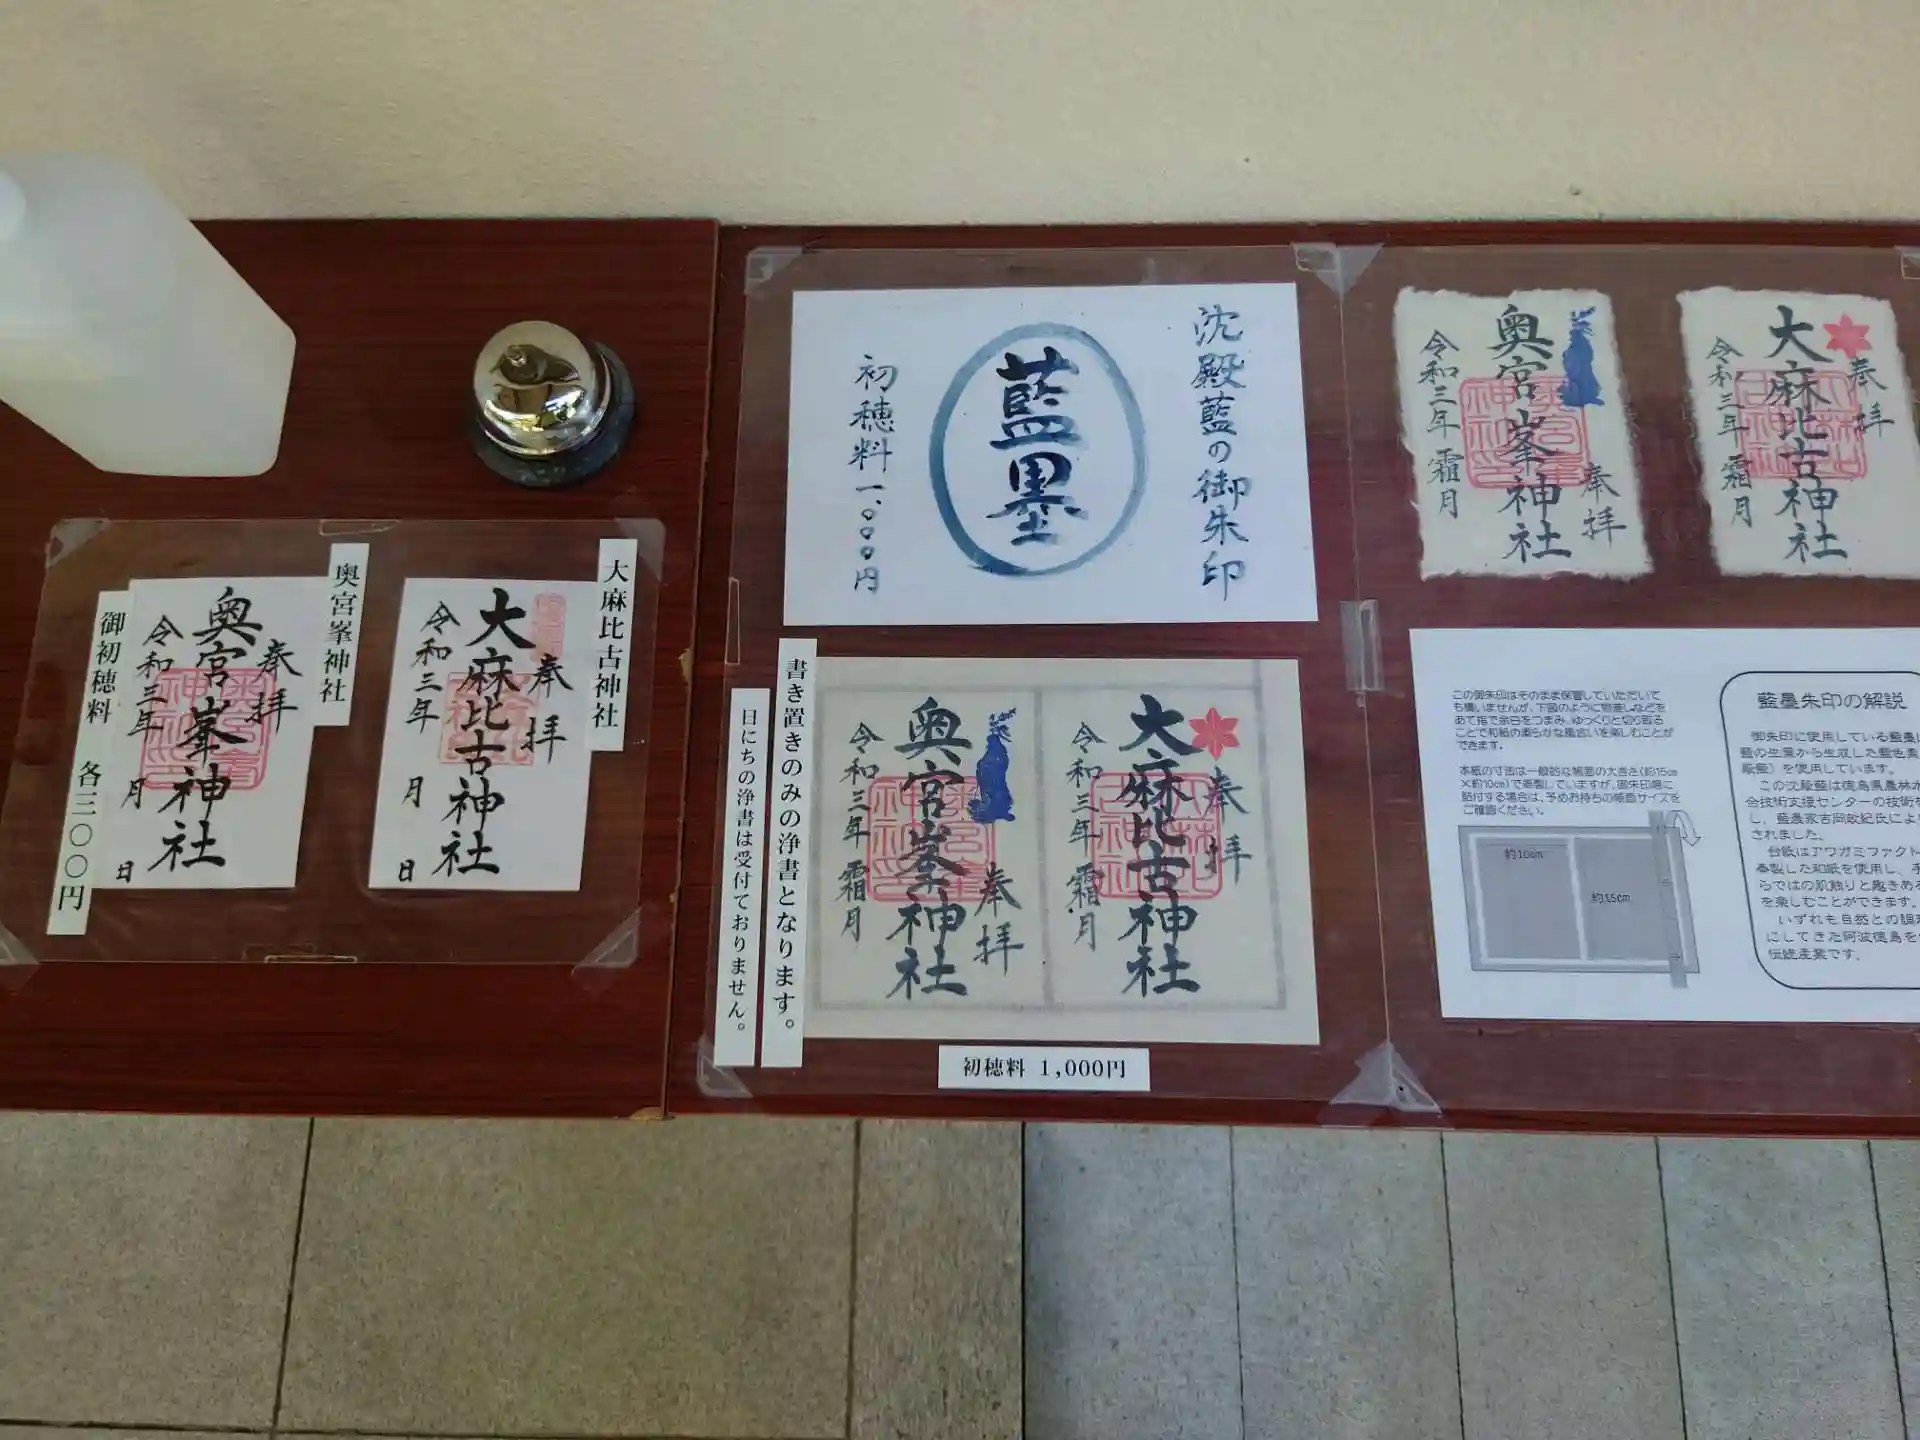 大麻比古神社
奉拝
大麻比古神社
令和三年
月
日
奥宮峯神社
奉拝
奥宮峯神社
令和三年
月
日
御初穂料 各三〇〇円
沈殿藍の御朱印
藍墨
初穂料一、〇〇〇円
書き置きのみの浄書となります。
日にちの浄書は受付ておりません。
奉拝
大麻比古神社
令和三年霜月
奉拝
奥宮峯神社
令和三年霜月
初穂料 1,000円
奉拝
大麻比古神社
令和三年霜月
奉拝
奥宮峯神社
令和三年霜月
この御朱印はそのまま保管していただいて
も構いませんが、下図のように物差しなどを
あて指で余白をつまみ、ゆっくりと切り取る
ことで和紙の柔らかな風合いを楽しむことが
できます。
本紙の寸法は一般的な帳面の大きさ(約15cm
×約10cm)で奉製していますが、御朱印帳に
貼付する場合は、予めお持ちの帳面サイズを
ご確認ください。
約10cm
約15cm
藍墨朱印の解説
御朱印に使用している藍墨は
藍の生葉から生成した藍色素
殿藍)を使用しています。
この沈殿藍は徳島県農林水
合技術支援センターの技術
し、藍農家吉岡政紀氏によ
されました。
台紙はアワガミファクト
奉製した和紙を使用し、手
らではの肌触りと趣きある
を楽しむことができます。
いずれも自然との調和
にしてきた阿波徳島を
伝統産業です。